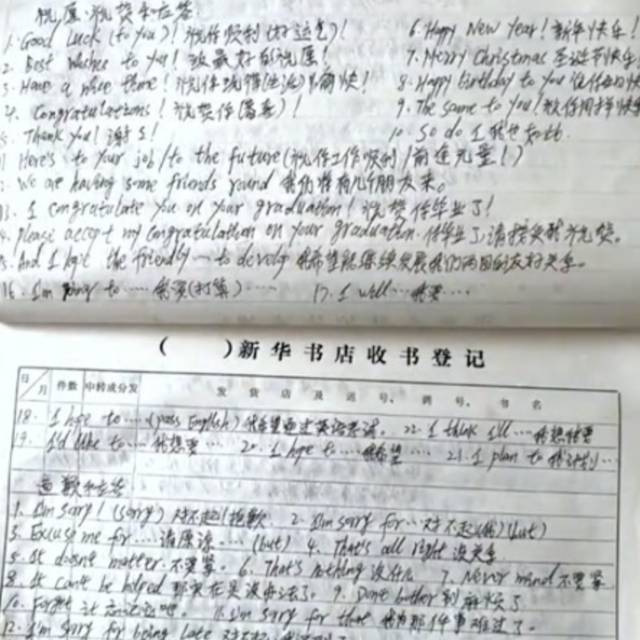 祝愿、祝贺和应答
1. Good Luck (to you)! 祝你顺利(好运气)! 6. Happy New Year! 新年快乐!
2. Best wishes to you! 致最好的祝愿! 7. Merry Christmas 圣诞节快乐!
3. Have a nice there! 祝你玩得(生活)愉快! 8. Happy birthday to you 祝你生日快
4. Congratulations! 祝贺你(高喜)! 9. The same to you! 敬你同样快
5. Thank you! 谢谢! 10. So do I 我也如此
Here's to your job/to the future (祝你工作顺利/前途无量!)
We are having some friends round 我们将有几个朋友来。
13. I congratulate you on your graduation! 祝贺你毕业了!
Please accept my congratulation on your graduation. 你毕业了请接受我的祝贺。
And I hope the friendly — to develop 我希望能继续发展我们两国的友好关系.
16. I'm going to ···· 我要(打算)···· 17. I will ···我要···
( )新华书店收书登记
日 月 件数 中转或分发 发货店及运号, 调号, 书名
18. I hope to ···· (pass English) 我希望通过英语考试. 22. I think I'll ····我想我要
19. I'd like to ···· 我想要··· 20. I hope to ····我希望···· 21. I plan to 我计划···
道歉和应答
1. I'm sorry! (Sorry) 对不起!抱歉. 2. I'm sorry for ···对不起(我)(but)
3. Excuse me for ···· 请原谅 ···· (but) 4. That's all right 没关系
5. It doesn't matter. 不要紧. 6. That's nothing 没什么 7. Never mind 不要紧
8. It can't be helped 那实在是没办法了. 9. Don't bother 别麻烦了
10. Forget it 忘记它吧. 11. I'm sorry for that 我为那件事难过了.
12. I'm sorry for being late